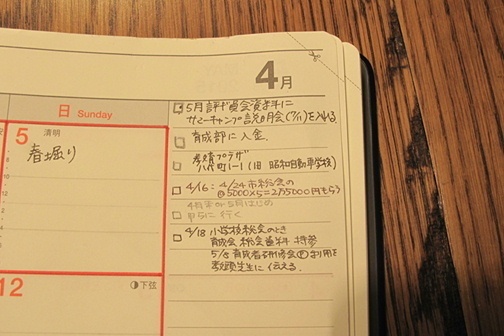 4月
日 Sunday
5 清明
春堀り
12 下弦
5月評議員会資料に
サマーキャンプ説明会(7/11)を入れる
育成部に入金
プラザ
八代町1-1(旧 昭和自動車学校)
4/16:4/24市総会の
@5000×5=2万5000円もらう
に行く
4/18 小学校総会のとき
育成会 総会資料 持参
5/8 育成者研修会 利用を
先生に伝える。